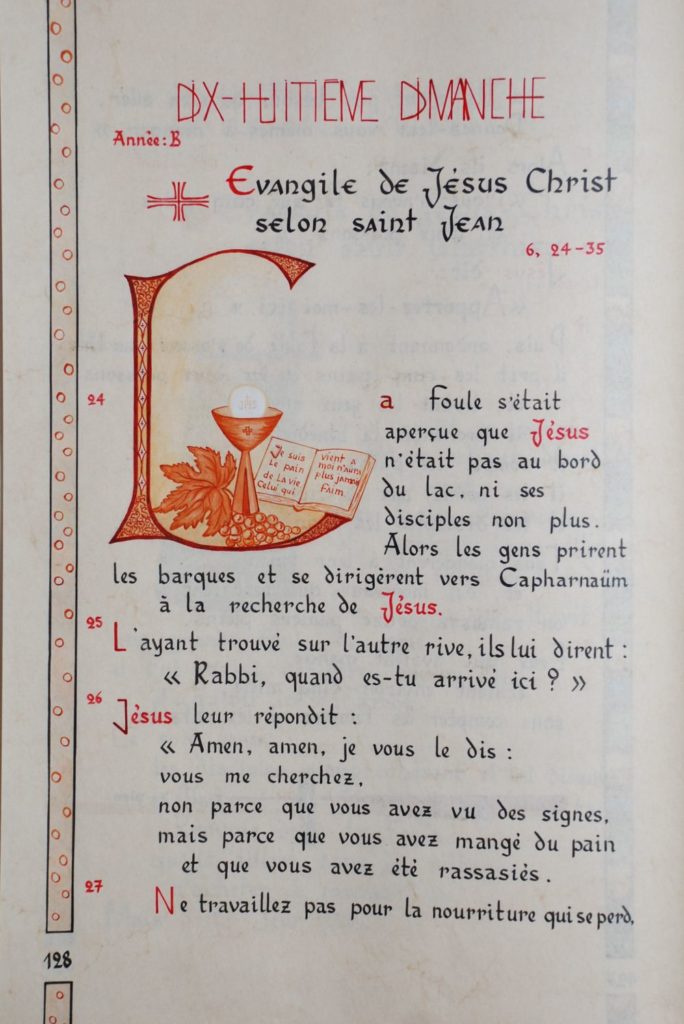 DIX-HUITIEME DIMANCHE
Année: B
Evangile de Jésus Christ
selon saint Jean
6, 24-35
24
a Foule s'était
aperçue que Jésus
n'était pas au bord
du lac, ni ses
disciples non plus.
Alors les gens prirent
les barques et se dirigèrent vers Capharnaüm
à la recherche de Jésus.
Je suis
Le pain
de La vie
Celui qui
vient a
moi n'aura
plus jamais
Faim.
25
L'ayant trouvé sur l'autre rive, ils lui dirent :
« Rabbi, quand es-tu arrivé ici ? »
26
Jésus leur répondit :
« Amen, amen, je vous le dis :
vous me cherchez,
non parce que vous avez vu des signes,
mais parce que vous avez mangé du pain
et que vous avez été rassasiés.
27
Ne travaillez pas pour la nourriture qui se perd,
128